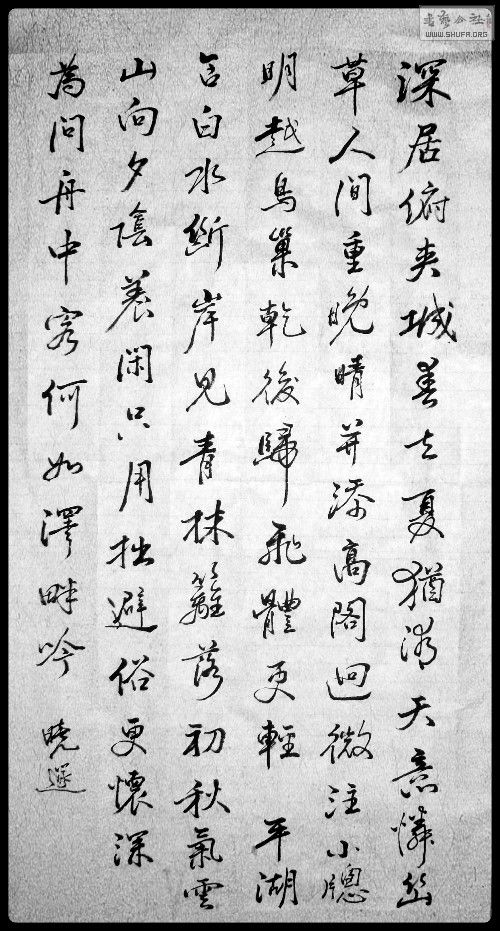 書藝公社
WWW.SHUFA.ORG
深居俯夾城春去夏猶清天意憐幽
草人間重晚晴并添高閣迥微注小牕
明越鳥巢乾後歸飛體更輕 平湖
含白水斷岸見青林籬落初秋氣雲
山向夕陰養閑只用拙避俗更懷深
為問舟中客何如澤畔吟 曉